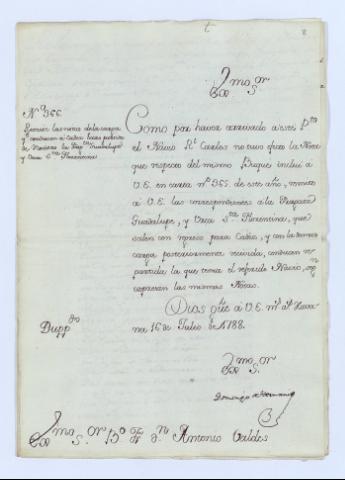 Exmo Sor
No 366.
Remite las notas de la carga
y conducen á Cadiz
Guadalupe
y Urca Sta Florentina
Como por haver arrivado á este Pto
el Navio Rl Carlos no tuvo efecto la Nota
que respecto del mismo Buque incluí á
V.E. en carta no 365. de este año, remito
á V.E. las correspondientes á la Fragata
Guadalupe, y Urca Sta Florentina, que
salen con rexistro para Cadiz, y con la
carga posteriormente recivida, conducen
partida la que tenia el referido Navio,
expresan las mismas Notas.
Dios gue á V.E. ms as Hava
na 16 de Julio de 1788.
Duppdo
Exmo Sor
Domingo de Hernani
Exmo Sor Bo Fr Dn Antonio Valdes